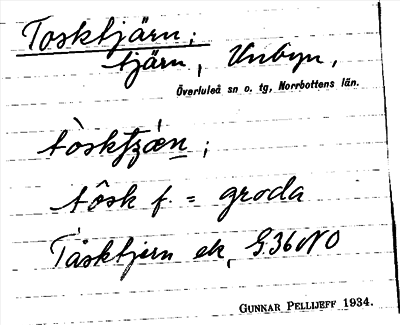 Tosktjärn;
tjärn, Unbyn,
Överluleå sn o. tg, Norrbottens län.
tòsktʃǽn;
tôsk f. = groda
Tåsktjern ek, G.36 NO
GUNNAR PELLIJEFF 1934.